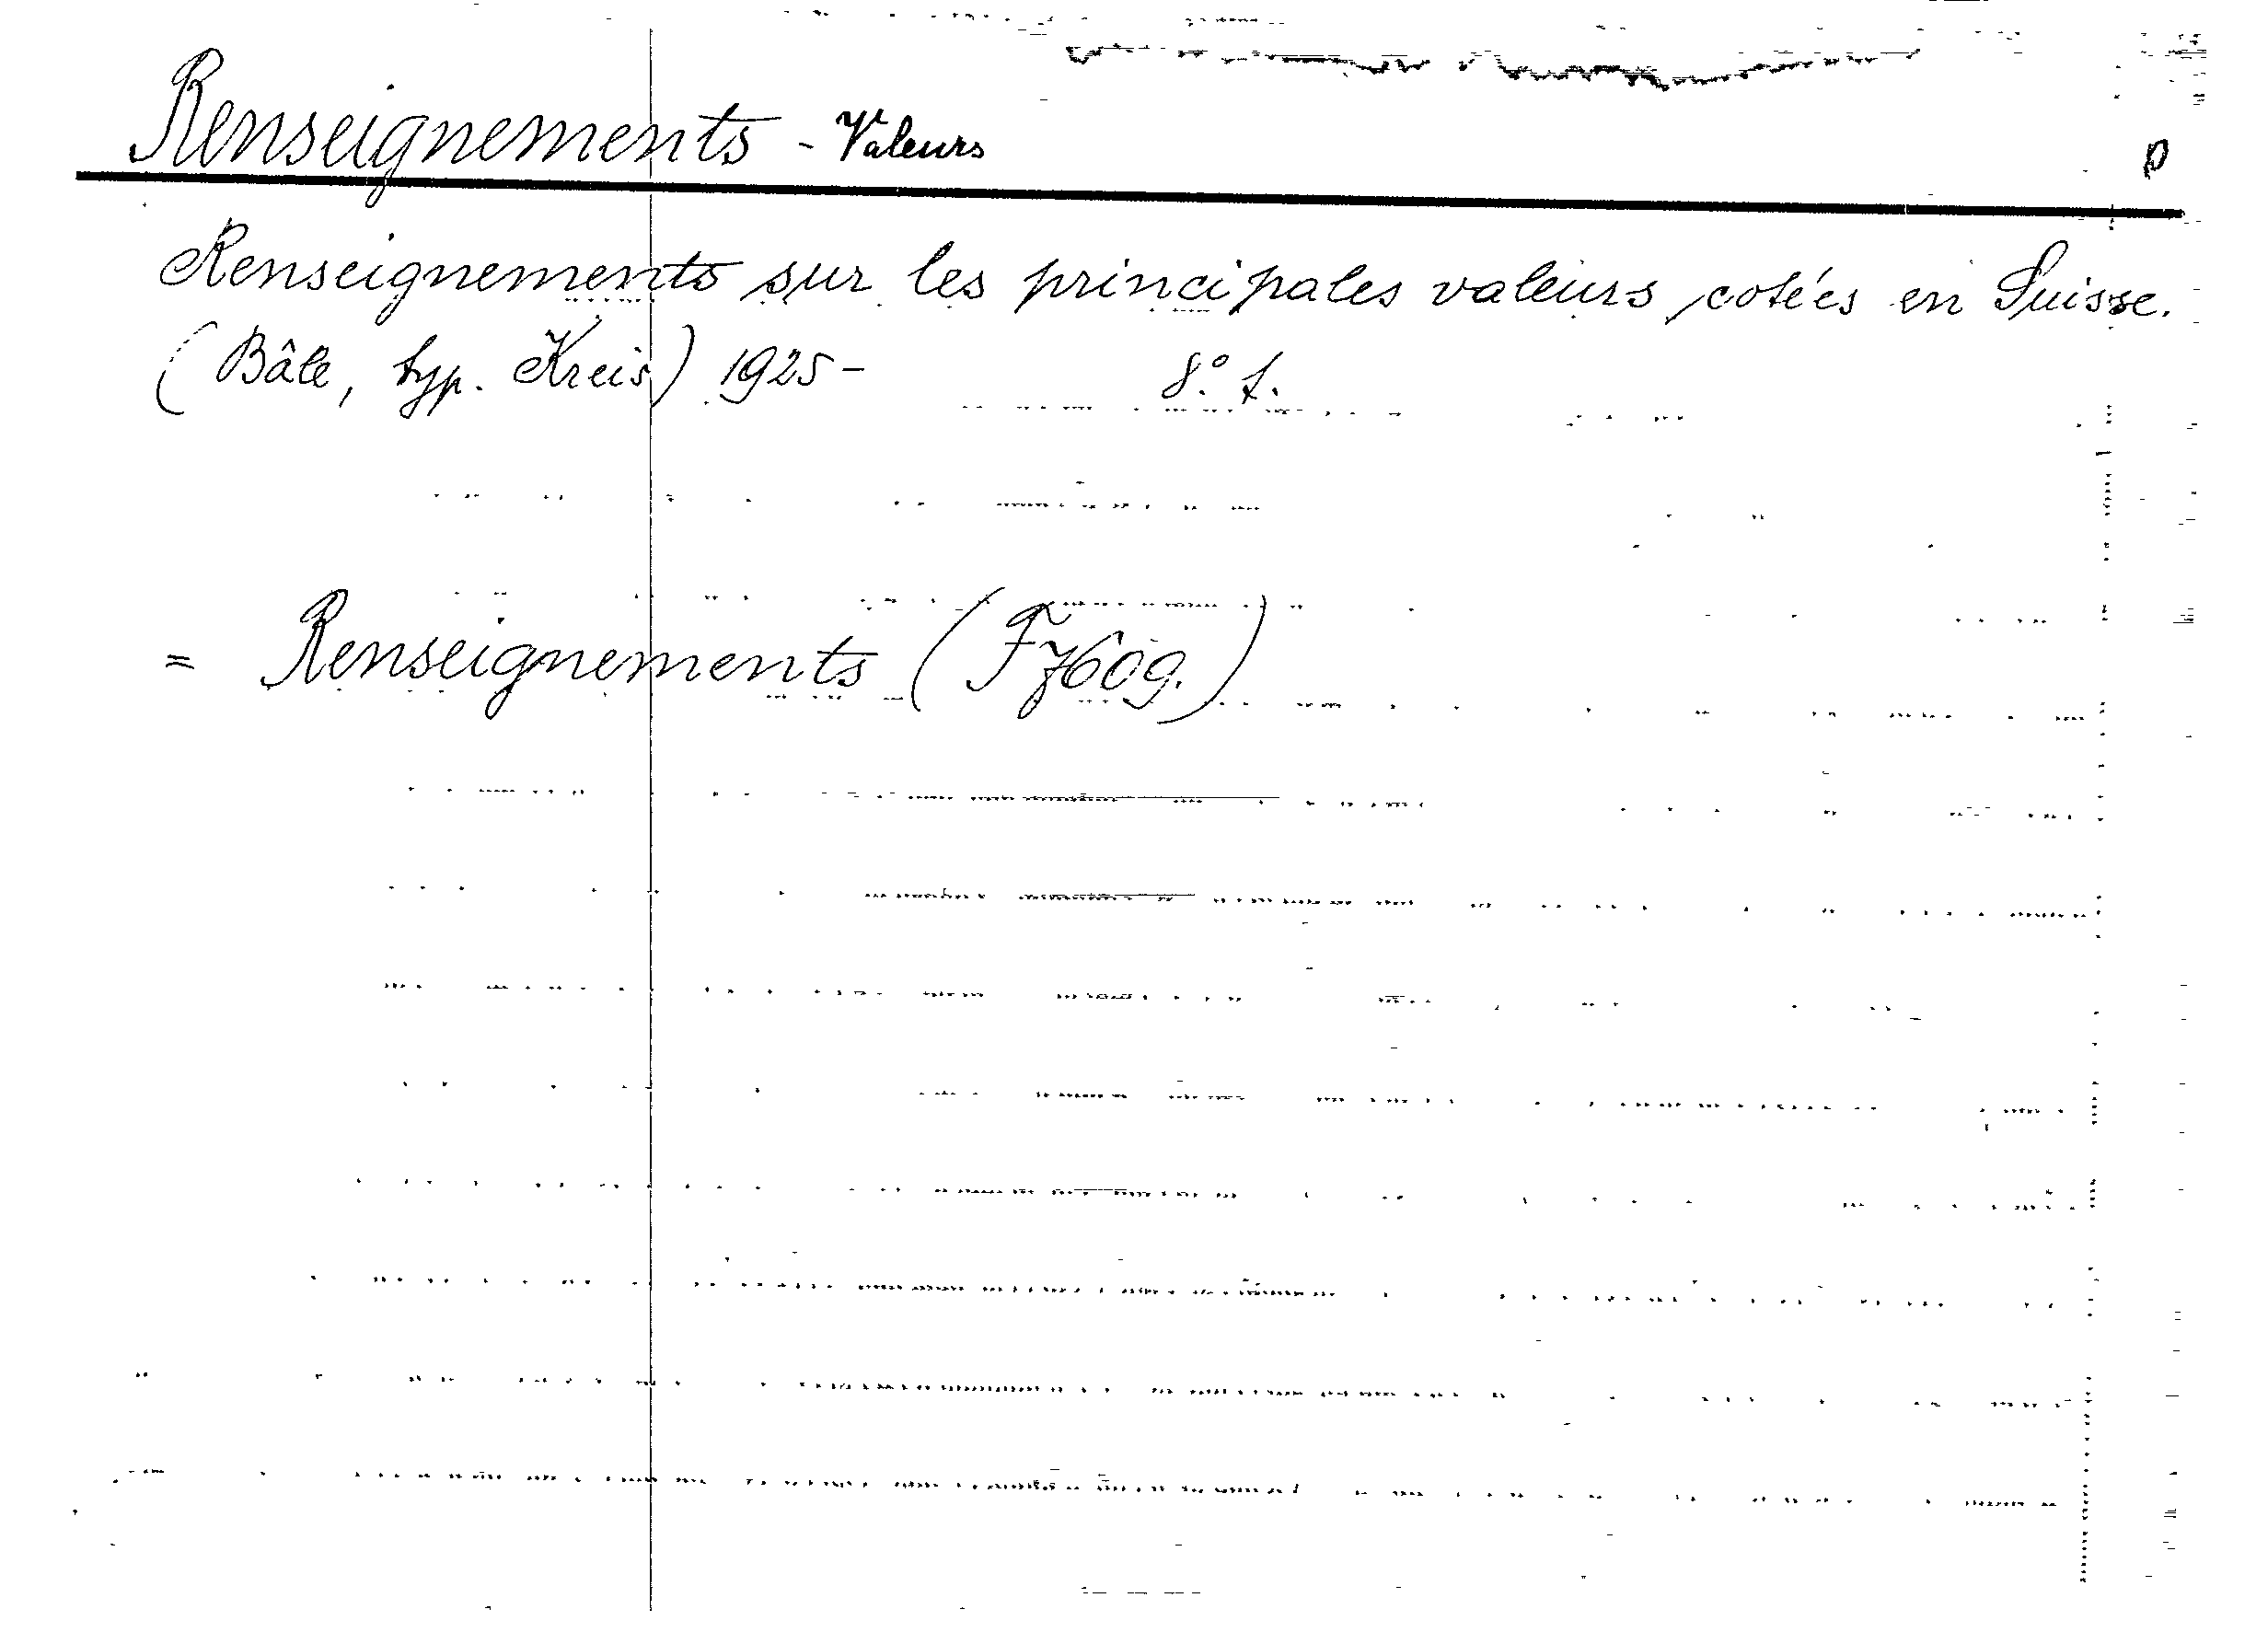 Renseignements - Valeurs p
Renseignements sur les principales valeurs cotées en Suisse.
(Bâle, typ. Kreis) 1925- 8°. f.
= Renseignements (F7609.)